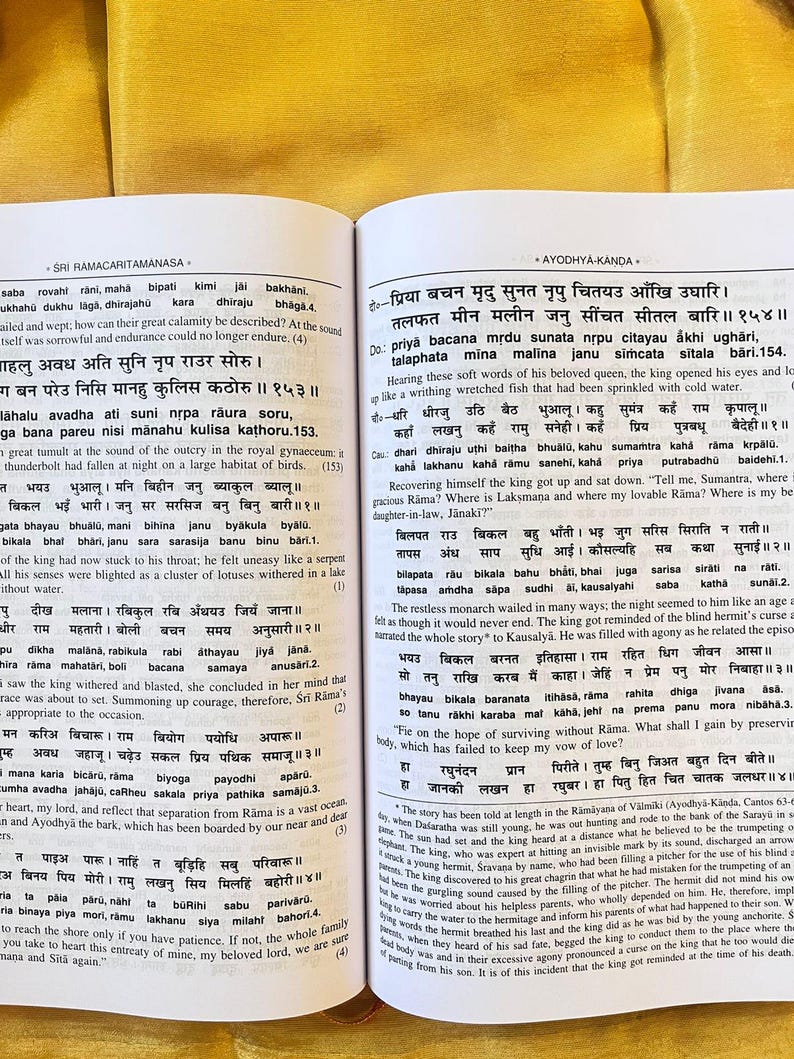 * ŚRĪ RĀMACARITAMĀNASA *
saba rovahi̐ rānī, mahā bipati kimi jāi bakhānī.
dukhu lāgā, dhīrajahū kara dhīraju bhāgā.4.
and wept; how can their great calamity be described? At the sound
itself was sorrowful and endurance could no longer endure. (4)
अवध अति सुनि नृप राउर सोरु।
बन परेउ निसि मानहु कुलिस कठोरु॥ १५३॥
avadha ati suni nṛpa rāura soru,
bana pareu nisi mānahu kulisa kaṭhoru.153.
great tumult at the sound of the outcry in the royal gynaeceum: it
thunderbolt had fallen at night on a large habitat of birds. (153)
भयउ भुआलू। मनि बिहीन जनु ब्याकुल ब्यालू॥
बिकल भइँ भारी। जनु सर सरसिज बनु बिनु बारी॥१॥
gata bhayau bhuālū, mani bihīna janu byākula byālū.
bikala bhai̐ bhārī, janu sara sarasija banu binu bārī.1.
of the king had now stuck to his throat; he felt uneasy like a serpent
All his senses were blighted as a cluster of lotuses withered in a lake
without water. (1)
दीख मलाना। रबिकुल रबि अँथयउ जियँ जाना॥
राम महतारी। बोली बचन समय अनुसारी॥२॥
dīkha malānā, rabikula rabi ãthayau jiyã jānā.
rāma mahatārī, bolī bacana samaya anusārī.2.
saw the king withered and blasted, she concluded in her mind that
race was about to set. Summoning up courage, therefore, Śrī Rāma's
appropriate to the occasion. (2)
मन करिअ बिचारू। राम बियोग पयोधि अपारू॥
अवध जहाजू। चढ़ेउ सकल प्रिय पथिक समाजू॥३॥
mana karia bicārū, rāma biyoga payodhi apārū.
avadha jahājū, caRheu sakala priya pathika samājū.3.
heart, my lord, and reflect that separation from Rāma is a vast ocean,
and Ayodhyā the bark, which has been boarded by our near and dear
(3)
त पाइअ पारू। नाहिं त बूड़िहि सबु परिवारू॥
बिनय पिय मोरी। रामु लखनु सिय मिलहिं बहोरी॥४॥
ta pāia pārū, nāhi̐ ta būRihi sabu parivārū.
binaya piya morī, rāmu lakhanu siya milahi̐ bahorī.4.
to reach the shore only if you have patience. If not, the whole family
you take to heart this entreaty of mine, my beloved lord, we are sure
and Sītā again." (4)
* AYODHYĀ-KĀṆḌA *
दो०—प्रिया बचन मृदु सुनत नृपु चितयउ आँखि उघारि।
तलफत मीन मलीन जनु सींचत सीतल बारि॥ १५४॥
Do.: priyā bacana mṛdu sunata nṛpu citayau ā̐khi ughāri,
talaphata mīna malīna janu sī̐mcata sītala bāri.154.
Hearing these soft words of his beloved queen, the king opened his eyes and
up like a writhing wretched fish that had been sprinkled with cold water.
चौ०—धरि धीरजु उठि बैठ भुआलू। कहु सुमंत्र कहँ राम कृपालू॥
कहाँ लखनु कहँ रामु सनेही। कहँ प्रिय पुत्रबधू बैदेही॥१॥
Cau.: dhari dhīraju uṭhi baiṭha bhuālū, kahu sumaṁtra kahã rāma kṛpālū.
kahā̐ lakhanu kahã rāmu sanehī, kahã priya putrabadhū baidehī.1.
Recovering himself the king got up and sat down. "Tell me, Sumantra, where
gracious Rāma? Where is Lakṣmaṇa and where my lovable Rāma? Where is my
daughter-in-law, Jānakī?"
बिलपत राउ बिकल बहु भाँती। भइ जुग सरिस सिराति न राती॥
तापस अंध साप सुधि आई। कौसल्यहि सब कथा सुनाई॥२॥
bilapata rāu bikala bahu bhā̐tī, bhai juga sarisa sirāti na rātī.
tāpasa aṁdha sāpa sudhi āī, kausalyahi saba kathā sunāī.2.
The restless monarch wailed in many ways; the night seemed to him like an age
felt as though it would never end. The king got reminded of the blind hermit's curse
narrated the whole story* to Kausalyā. He was filled with agony as he related the
भयउ बिकल बरनत इतिहासा। राम रहित धिग जीवन आसा॥
सो तनु राखि करब मैं काहा। जेहिं न प्रेम पनु मोर निबाहा॥३॥
bhayau bikala baranata itihāsā, rāma rahita dhiga jīvana āsā.
so tanu rākhi karaba mai̐ kāhā, jehi̐ na prema panu mora nibāhā.3.
"Fie on the hope of surviving without Rāma. What shall I gain by
body, which has failed to keep my vow of love?
हा रघुनंदन प्रान पिरीते। तुम्ह बिनु जिअत बहुत दिन बीते॥
हा जानकी लखन हा रघुबर। हा पितु हित चित चातक जलधर॥४॥
* The story has been told at length in the Rāmāyaṇa of Vālmīki (Ayodhyā-Kāṇḍa, Cantos
day, when Daśaratha was still young, he was out hunting and rode to the bank of the Sarayū in
game. The sun had set and the king heard at a distance what he believed to be the trumpeting
elephant. The king, who was expert at hitting an invisible mark by its sound, discharged an
it struck a young hermit, Śravaṇa by name, who had been filling a pitcher for the use of his blind
parents. The king discovered to his great chagrin that what he had mistaken for the trumpeting of an
had been the gurgling sound caused by the filling of the pitcher. The hermit did not mind his
but he was worried about his helpless parents, who wholly depended on him. He, therefore,
king to carry the water to the hermitage and inform his parents of what had happened to their son.
dying words the hermit breathed his last and the king did as he was bid by the young anchorite.
parents, when they heard of his sad fate, begged the king to conduct them to the place where the
dead body was and in their excessive agony pronounced a curse on the king that he too would
of parting from his son. It is of this incident that the king got reminded at the time of his death.